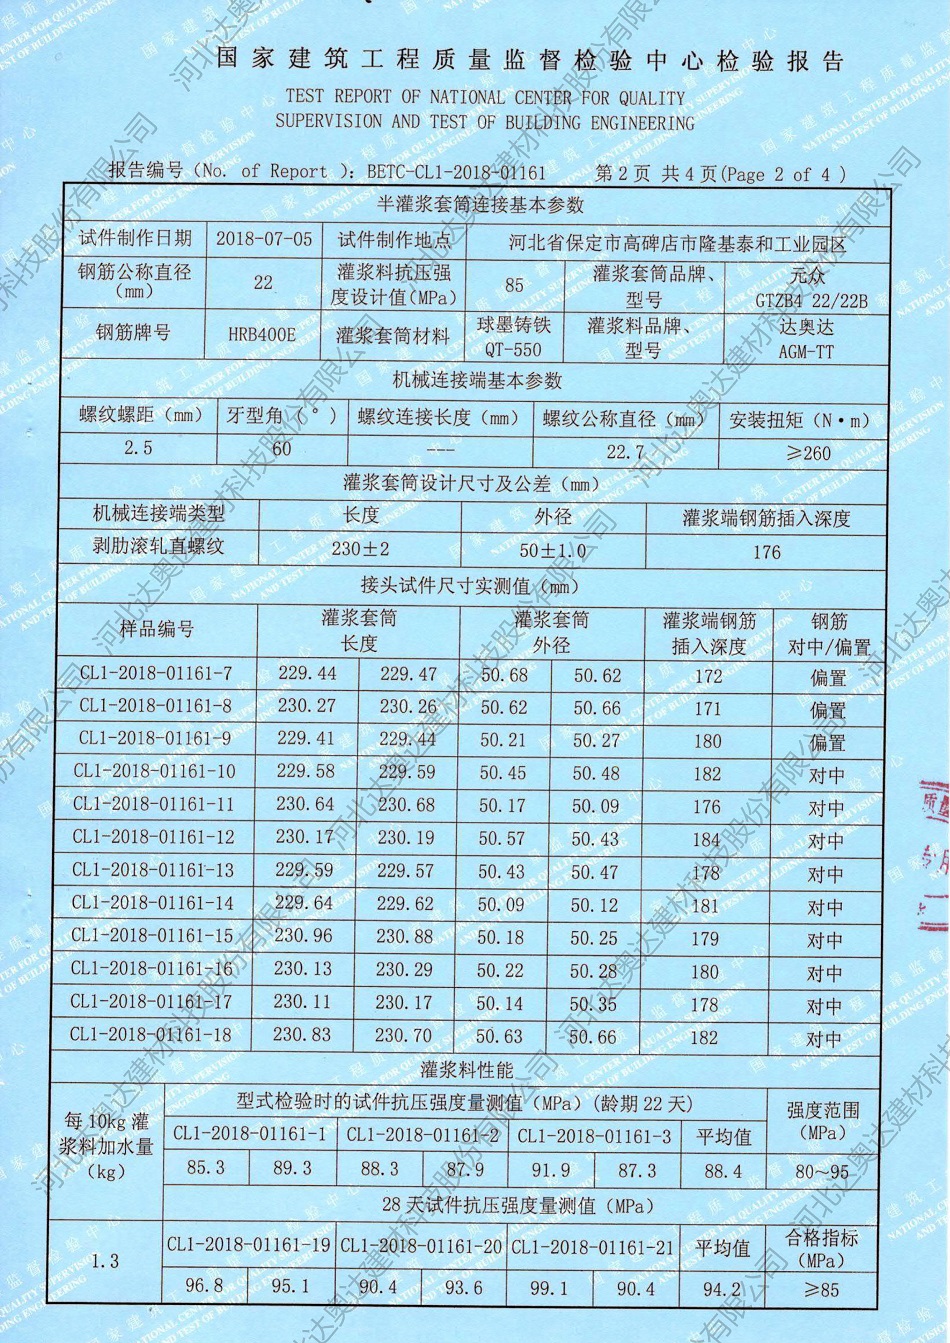 国家建筑工程质量监督检验中心检验报告
TEST REPORT OF NATIONAL CENTER FOR QUALITY
SUPERVISION AND TEST OF BUILDING ENGINEERING
报告编号（No. of Report ）：BETC-CL1-2018-01161 第 2 页 共 4 页(Page 2 of 4 )
半灌浆套筒连接基本参数
试件制作日期 2018-07-05 试件制作地点 河北省保定市高碑店市隆基泰和工业园区
钢筋公称直径（mm） 22 灌浆料抗压强度设计值(MPa) 85 灌浆套筒品牌、型号 元众 GTZB4 22/22B
钢筋牌号 HRB400E 灌浆套筒材料 球墨铸铁 QT-550 灌浆料品牌、型号 达奥达 AGM-TT
机械连接端基本参数
螺纹螺距（mm） 牙型角（°） 螺纹连接长度（mm） 螺纹公称直径（mm） 安装扭矩（N·m）
2.5 60 --- 22.7 ≥260
灌浆套筒设计尺寸及公差（mm）
机械连接端类型 长度 外径 灌浆端钢筋插入深度
剥肋滚轧直螺纹 230±2 50±1.0 176
接头试件尺寸实测值（mm）
样品编号 灌浆套筒长度 灌浆套筒外径 灌浆端钢筋插入深度 钢筋对中/偏置
CL1-2018-01161-7 229.44 229.47 50.68 50.62 172 偏置
CL1-2018-01161-8 230.27 230.26 50.62 50.66 171 偏置
CL1-2018-01161-9 229.41 229.44 50.21 50.27 180 偏置
CL1-2018-01161-10 229.58 229.59 50.45 50.48 182 对中
CL1-2018-01161-11 230.64 230.68 50.17 50.09 176 对中
CL1-2018-01161-12 230.17 230.19 50.57 50.43 184 对中
CL1-2018-01161-13 229.59 229.57 50.43 50.47 178 对中
CL1-2018-01161-14 229.64 229.62 50.09 50.12 181 对中
CL1-2018-01161-15 230.96 230.88 50.18 50.25 179 对中
CL1-2018-01161-16 230.13 230.29 50.22 50.28 180 对中
CL1-2018-01161-17 230.11 230.17 50.14 50.35 178 对中
CL1-2018-01161-18 230.83 230.70 50.63 50.66 182 对中
灌浆料性能
每 10kg 灌浆料加水量（kg） 型式检验时的试件抗压强度量测值（MPa）(龄期 22 天) 强度范围（MPa）
CL1-2018-01161-1 CL1-2018-01161-2 CL1-2018-01161-3 平均值
85.3 89.3 88.3 87.9 91.9 87.3 88.4 80～95
28 天试件抗压强度量测值（MPa）
1.3 CL1-2018-01161-19 CL1-2018-01161-20 CL1-2018-01161-21 平均值 合格指标（MPa）
96.8 95.1 90.4 93.6 99.1 90.4 94.2 ≥85
河北达奥达建材科技股份有限公司